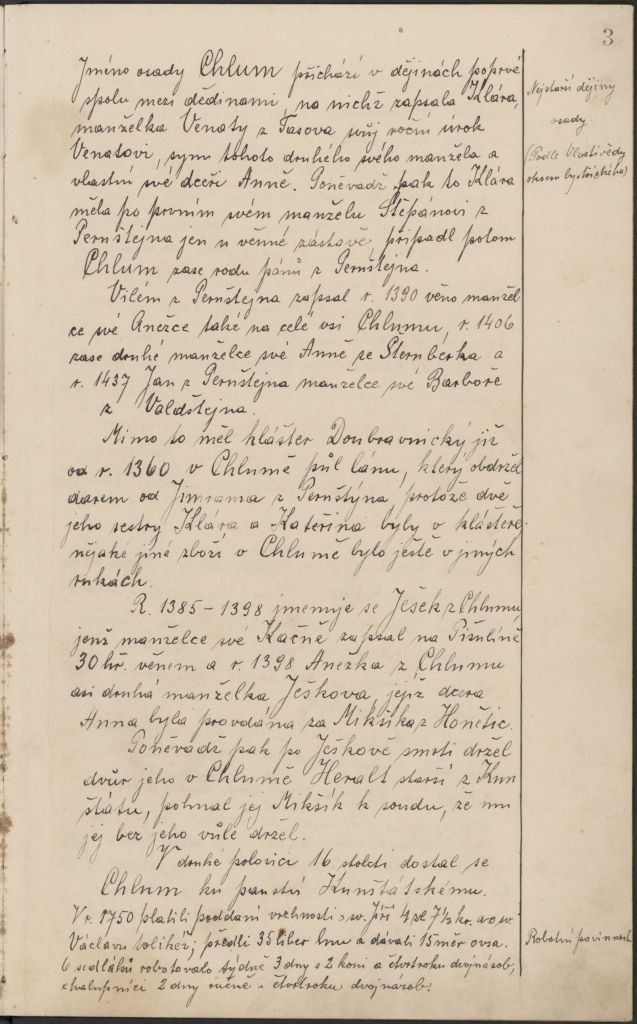 3
Jméno osady Chlum přichází v dějinách poprvé
spolu mezi dědinami, na nichž zapsala Klára,
manželka Venaty z Tasova svůj roční úrok
Venatovi, synu tohoto druhého svého manžela a
vlastní své dceři Anně. Poněvadž pak to Klára
měla po prvním svém manželu Štěpánovi z
Pernštejna jen u věnné zástavě, připadl potom
Chlum zase rodu pánů z Pernštejna.
Vilém z Pernštejna zapsal r. 1390 věno manžel
ce své Anežce také na celé vsi Chlumu, r. 1406
zase druhé manželce své Anně ze Šternberka a
r. 1437 Jan z Pernštejna manželce své Barboře
z Valdštejna.
Mimo to měl klášter Doubravnický již
od r. 1360 v Chlumě půl lánu, který obdržel
darem od Jimrama z Pernštýna, protože dvě
jeho sestry Klára a Kateřina byly v klášteře.
nějaké jiné zboží v Chlumě bylo ještě v jiných
rukách.
R. 1385-1398 jmenuje se Ješek z Chlumu,
jenž manželce své Kačně zapsal na Pišulíně
30 hř. věnem a r. 1398 Anežka z Chlumu
asi druhá manželka Ješkova, jejíž dcera
Anna byla provdána za Mikšíka z Honětic.
Poněvadž pak po Ješkově smrti držel
dvůr jeho v Chlumě Heralt starší z Kun
štátu, pohnal jej Mikšík k soudu, že mu
jej bez jeho vůle držel.
V druhé polovici 16. století dostal se
Chlum ku panství Kunštátskému.
V r. 1750 platili poddaní vrchnosti o sv. Jiří 4 zl 7½ kr. a o sv.
Václavu tolikéž; předli 35 liber lnu a dávali 15 měr ovsa.
6 sedláků robotovalo týdně 3 dny s 2 koni a čtvrtroku dvojnásob,
chalupníci 2 dny ručně a čtvrtroku dvojnásob.
Nejstarší dějiny
osady.
(Podle Vlastivědy
okresu bystřického)
Robotní povinnosti